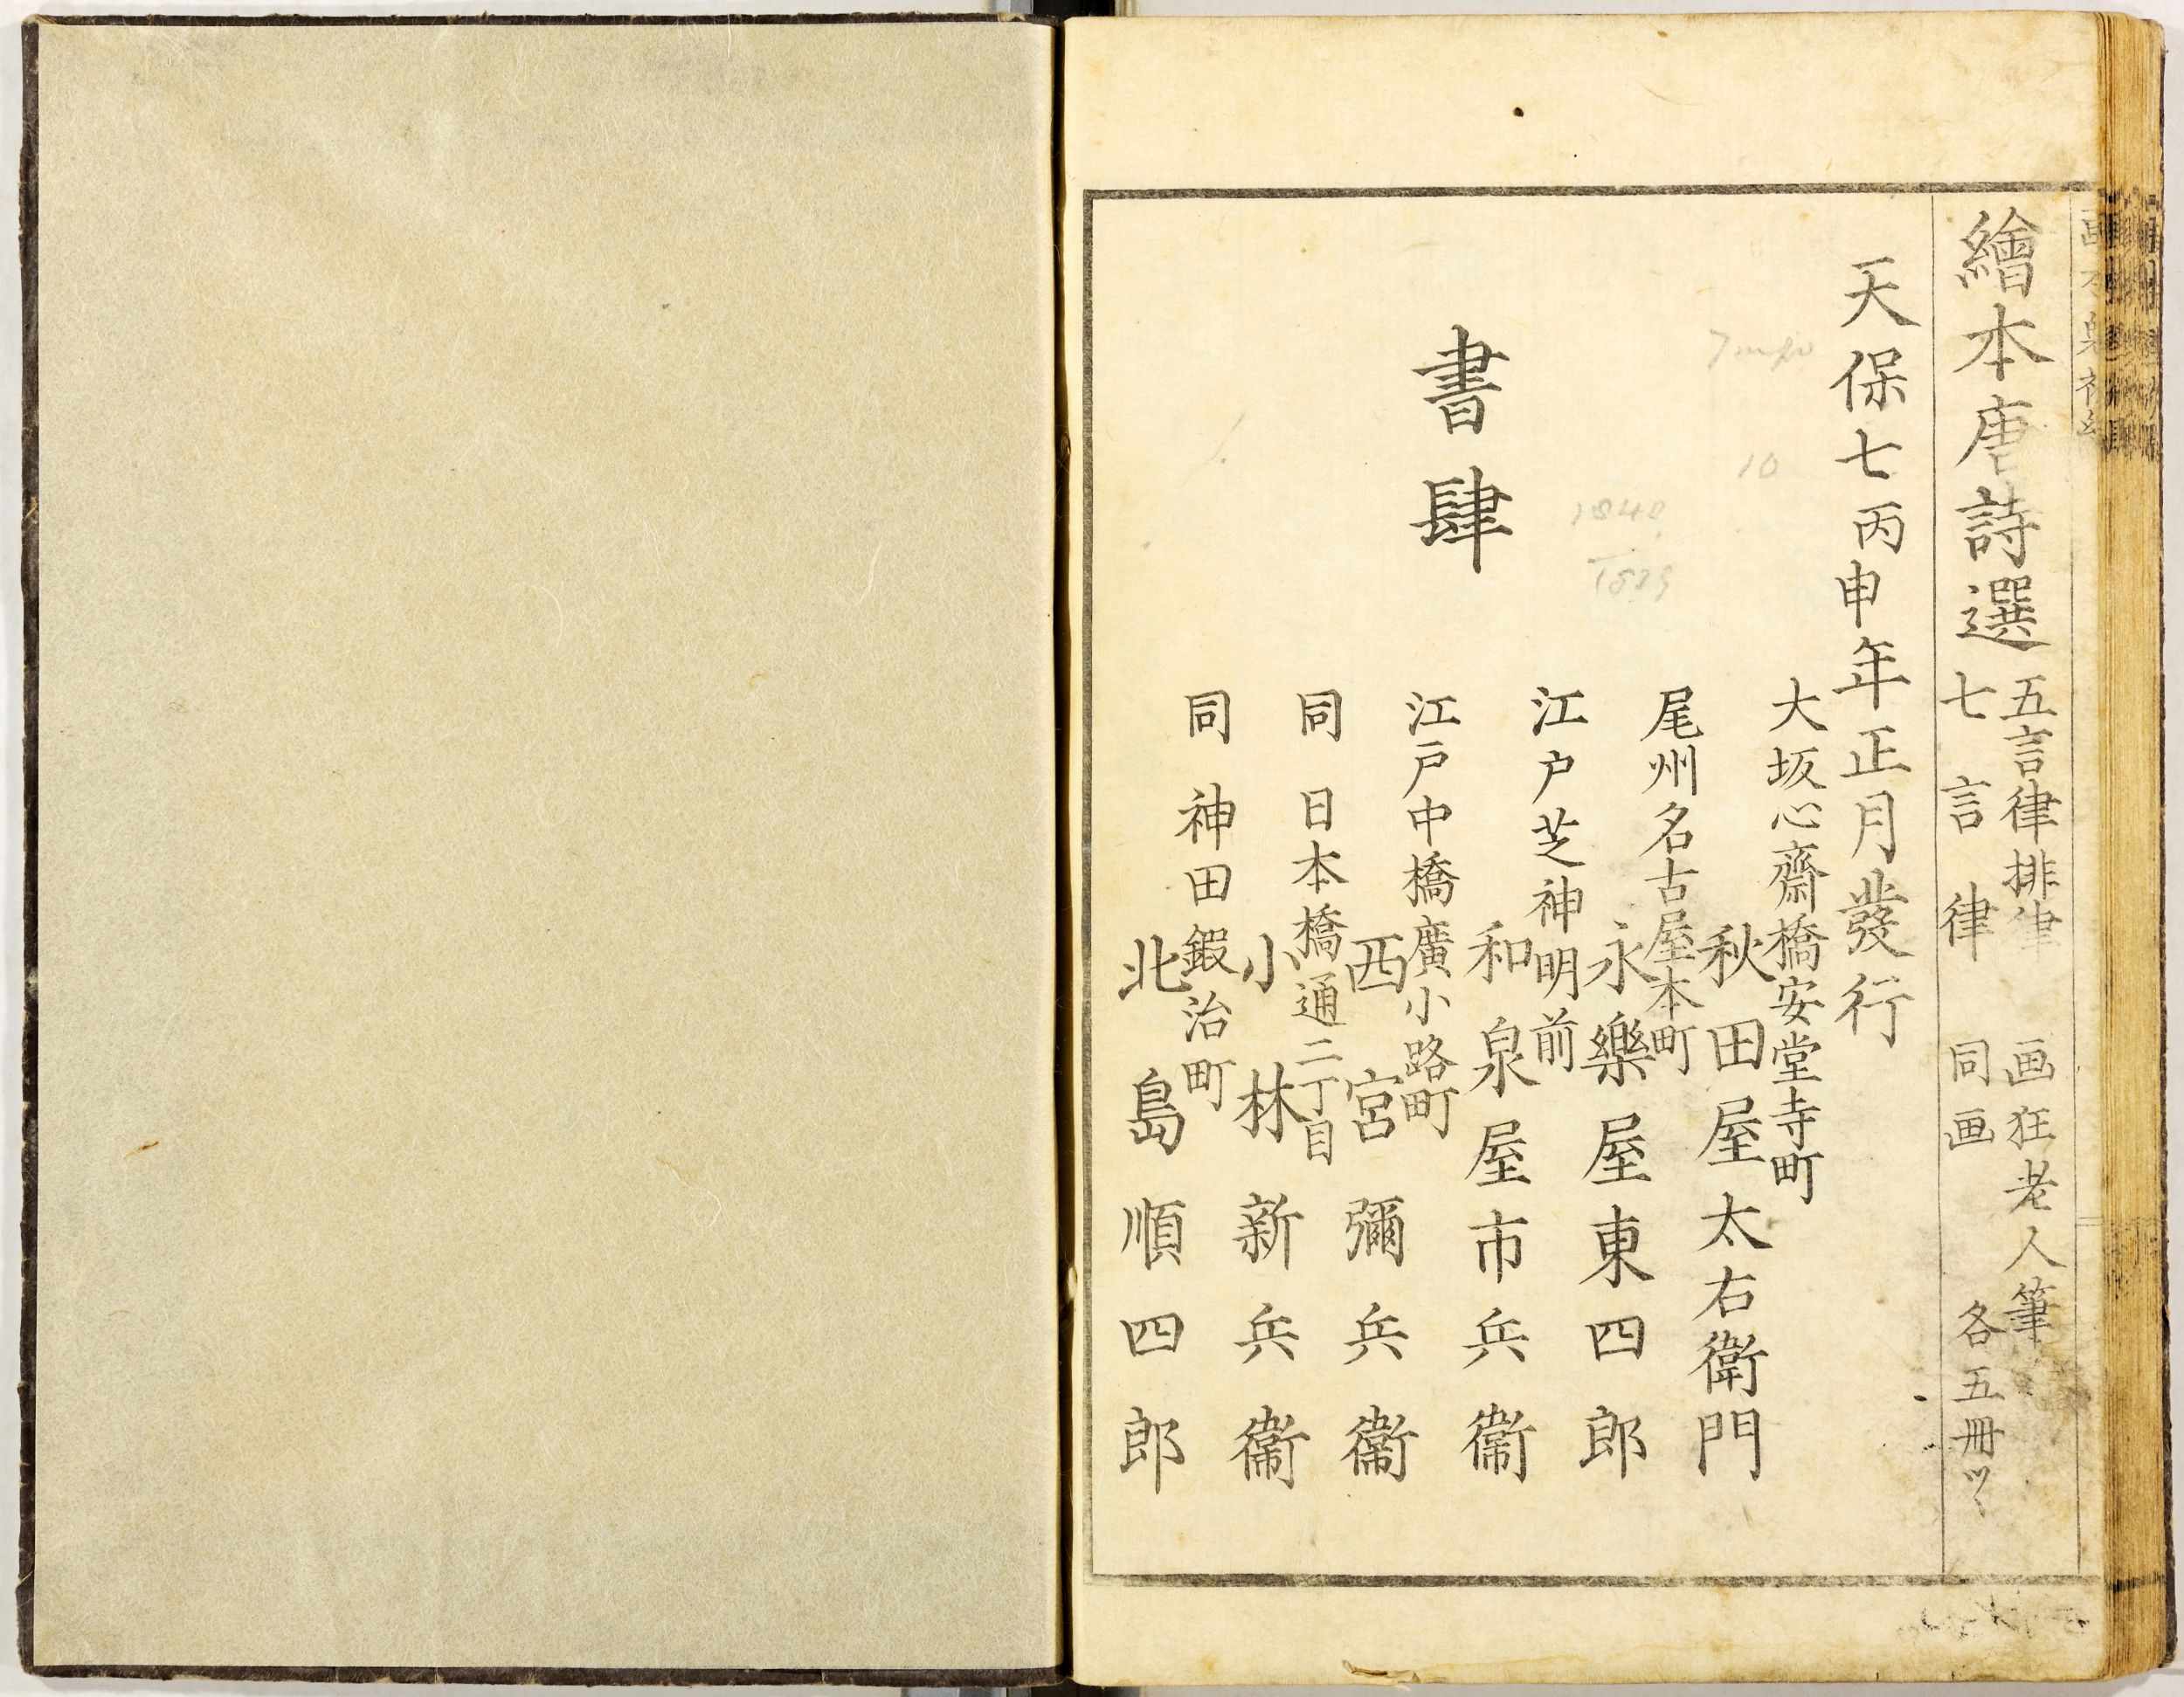 繪本唐詩選
五言律排律　画狂老人筆
七言律　同画　各五冊ツヽ
天保七丙申年正月發行
書肆
大坂心齋橋安堂寺町
秋田屋太右衛門
尾州名古屋本町
永樂屋東四郎
江户芝神明前
和泉屋市兵衞
江戸中橋廣小路町
西宮彌兵衞
同　日本橋通二丁目
小林新兵衞
同　神田鍜治町
北島順四郎
10